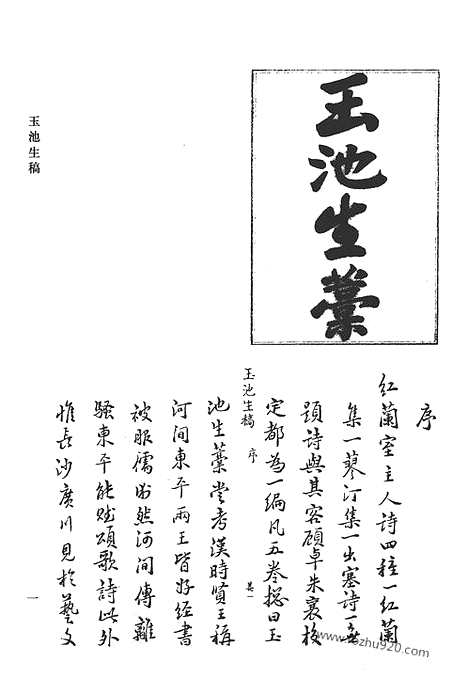 玉池生藁
序
紅蘭室主人詩四種一紅蘭
集一蓼汀集一出塞詩一無
題詩與其客顧卓朱襄校
定都為一編凡五卷總曰玉
玉池生稿 序
池生藁嘗考漢時賢王稱
河間東平兩王皆好經書
被服儒術然河間傳離
騷東平能賦頌歌詩此外
惟長沙廣川見於藝文
玉池生稿
一